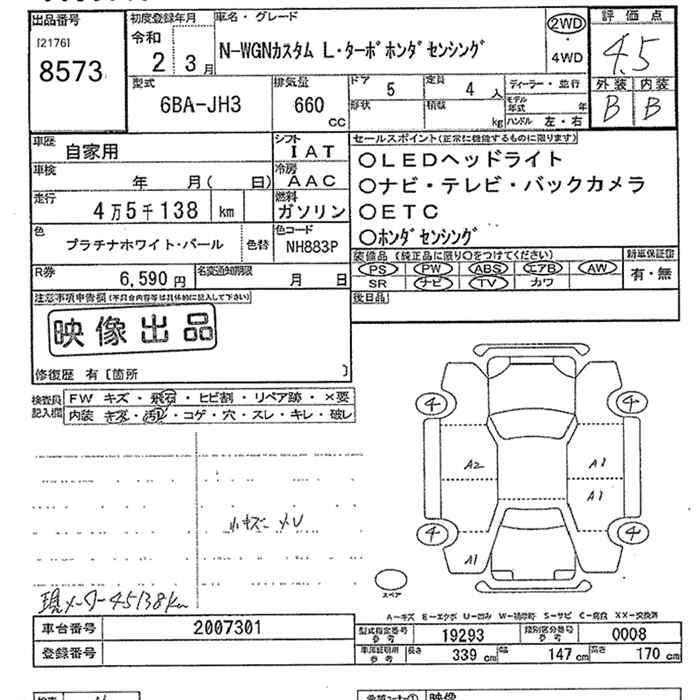 出品番号 初度登録年月 車名・グレード 評価点
[2176] 8573
令和 2年 3月
N-WGNカスタム L・ターボホンダセンシング
2WD・4WD
4.5
外装 内装
B B
型式 6BA-JH3
排気量 660 CC
ドア 5 定員 4人
形状 積載 kg
ディーラー・並行
モデル年式 年
ハンドル 左・右
車歴 自家用
シフト IAT
車検 年 月( 日)
冷房 AAC
走行 4万5千138 km
燃料 ガソリン
色 プラチナホワイト・パール 色替
色コード NH883P
R券 6,590円
名変通知期限 月 日
セールスポイント(正常に機能するものに限ります)
○LEDヘッドライト
○ナビ・テレビ・バックカメラ
○ETC
○ホンダセンシング
装備品 (純正品に限り○をつけてください)
PS PW ABS エアB AW
SR ナビ TV カワ
新車保証書 有・無
後日品
注意事項申告欄(不具合内容等は具体的に記入して下さい)
映像出品
修復歴 有〔箇所 〕
検査員記入欄
FW キズ・飛石・ヒビ割・リペア跡・×要
内装 キズ・汚レ・コゲ・穴・スレ・キレ・破レ
小キズ メU
現メーター45138km
4 4
A2 A1
A1
4 4
A1
スペア
A-キズ E-エクボ U-凹み W-補修跡 S-サビ C-腐食 XX-交換済
車台番号 2007301
登録番号
型式指定番号 参考 19293
類別区分番号 参考 0008
車庫証明用 参考 長さ 339 cm 幅 147 cm 高さ 170 cm
映像